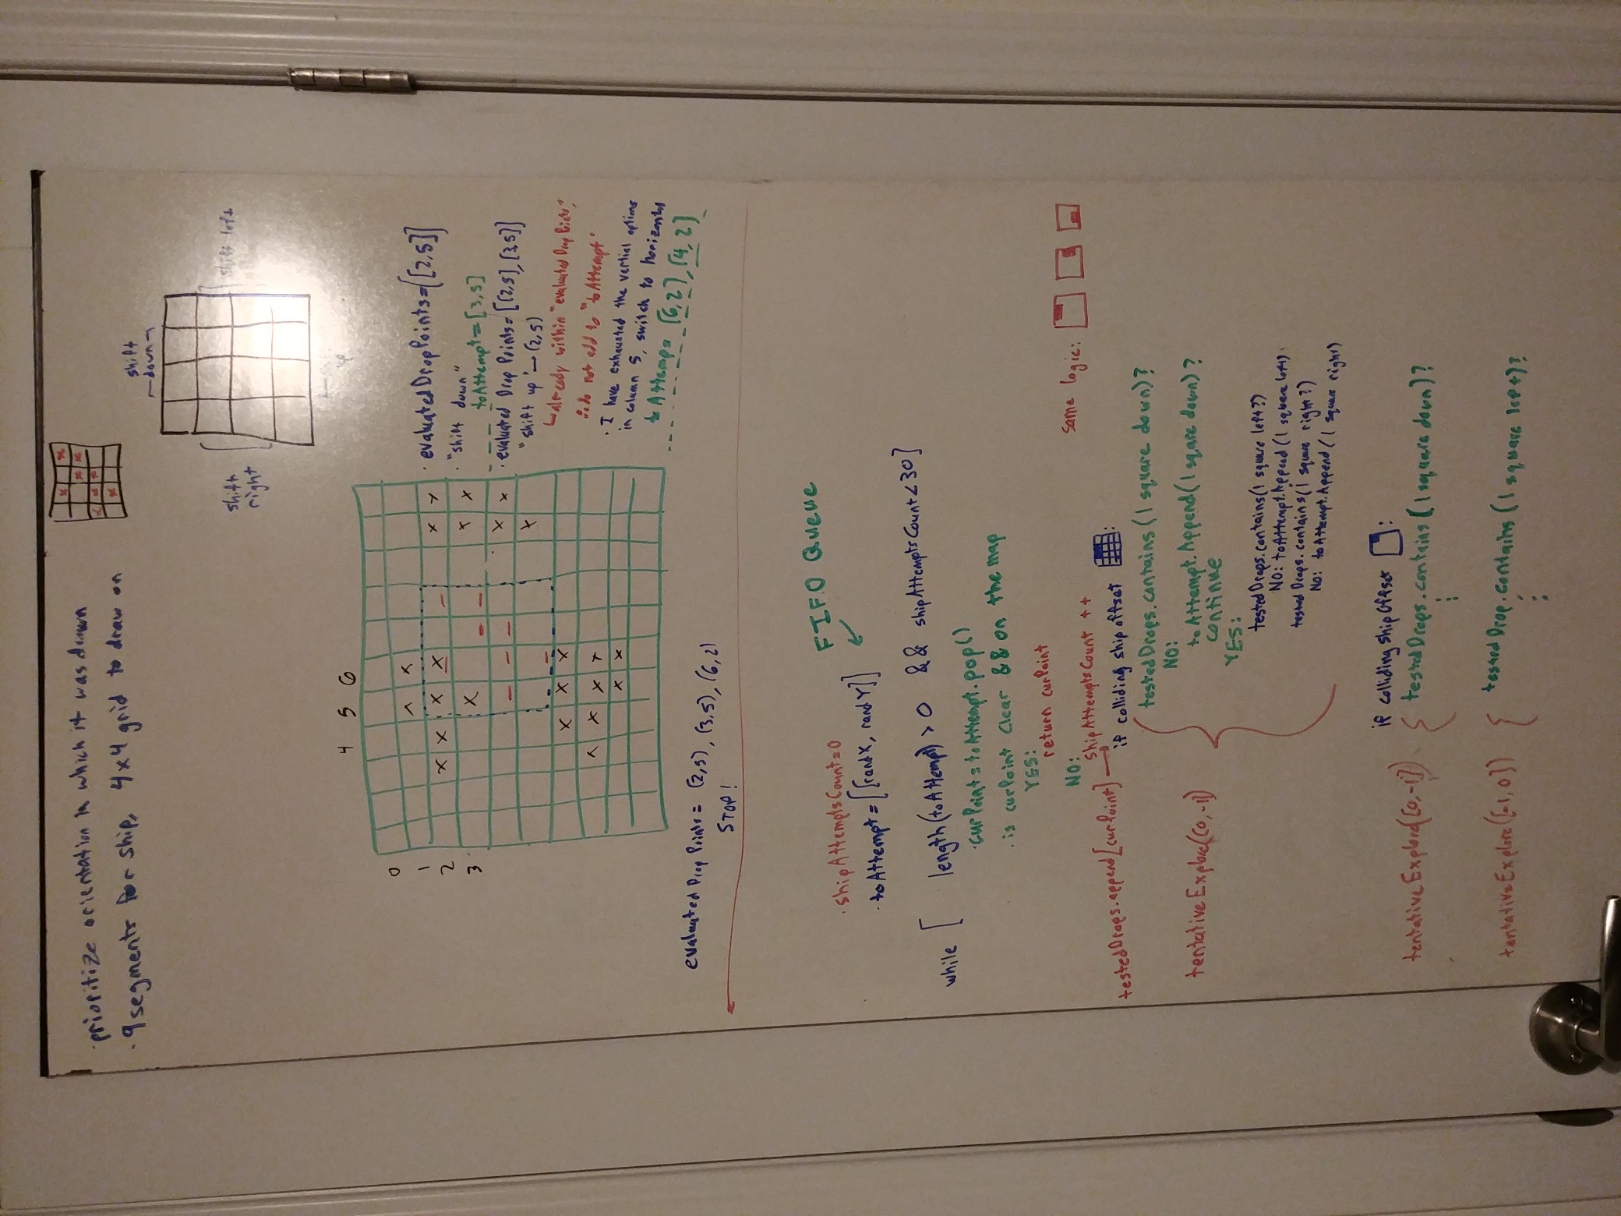 · prioritize orientation in which it was drawn
· 9 segments for ship, 4x4 grid to draw on
shift
down
shift
right
shift left
4 5 6
0
1
2
3
· evaluatedDropPoints=[[2,5]]
· "shift down"
toAttempt=[3,5]
· evaluated Drop Points=[[2,5],[3,5]]
"shift up" → (2,5)
↳ already within "evaluated Drop Points,"
∴ do not add to "toAttempt"
· I have exhausted the vertial options
in column 5, switch to horizontal
to Attemp= [6,2], [4,2]
evaluated Drop Points = (2,5), (3,5), (6,2)
STOP!
FIFO Queue
· shipAttemptsCount=0
· toAttempt=[[randX, randY]]
while [ length(toAttempt) > 0 && shipAttemptsCount<30]
· curPoint=toAttempt.pop()
. is curPoint clear && on the map
YES:
return curPoint
NO:
same logic:
shipAttemptsCount ++
testedDrops.append[curPoint] →
if colliding ship offset :
testedDrops.contains(1 square down)?
NO:
toAttempt.Append(1 square down)?
continue
YES:
tentativeExplore([0,-1])
testedDrops.contains(1 square left?)
NO: toAttempt.Append(1 square left)
testedDrops.contains(1 square right?)
NO: toAttempt.Append(1 square right)
if colliding shipOffset :
tentativeExplore([0,-1])
testedDrops.contains(1 square down)?
tentativeExplore([-1,0])
testedDrop.contains(1 square left)?